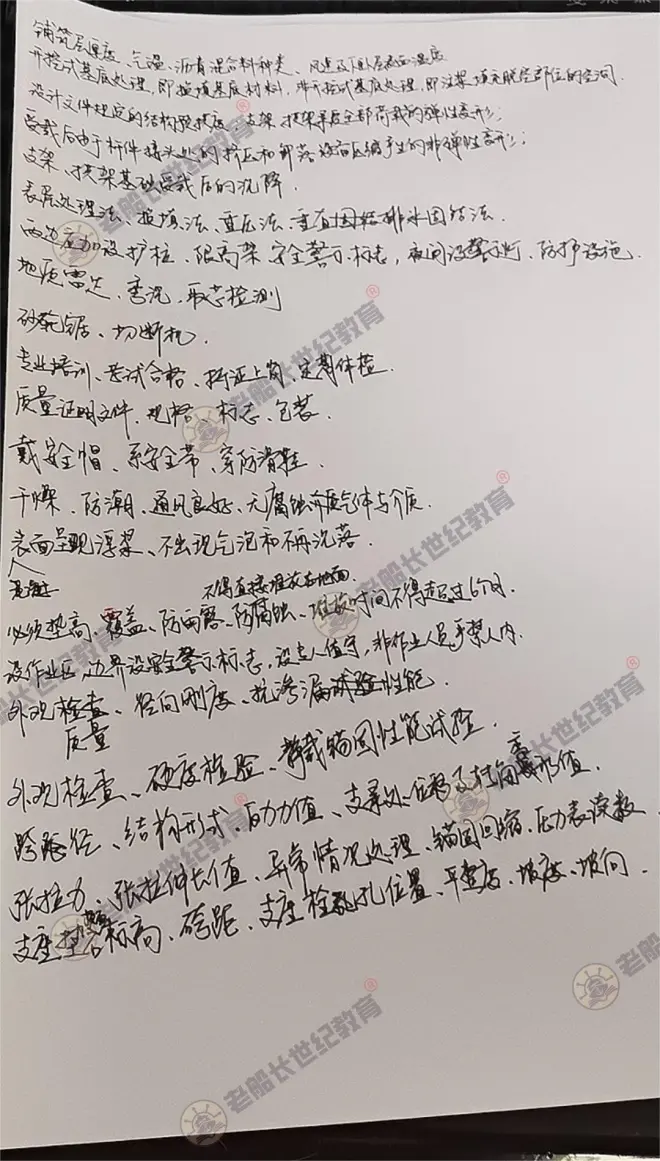 铺筑层厚度、气温、沥青混合料种类、风速及下卧层表面温度
开挖式基底处理,即换填基底材料,非开挖式基底处理,即注浆填充脱空部位的空洞.
设计文件规定的结构预拱度;支架、拱架承受全部荷载的弹性变形;
受载后由于杆件接头处的挤压和卸落设备压缩产生的非弹性变形;
支架、拱架基础受载后的沉降.
表层处理法、换填法、重压法、垂直排水固结法.
两边应加设护桩、限高架、安全警示标志,夜间设警示灯、防护设施.
地质雷达、弯沉、取芯检测
砂轮锯、切断机.
专业培训、考试合格、持证上岗、定期体检.
质量证明文件、规格、标志、包装.
戴安全帽、系安全带、穿防滑鞋.
干燥、防潮、通风良好、无腐蚀气体与介质.
表面呈现浮浆、不出现气泡和不再沉落.
人
不得直接堆放在地面.
必须垫高、覆盖、防雨露、防腐蚀、堆放时间不得超过6个月.
设作业区,边界设安全警示标志,设专人值守,非作业人员严禁入内.
外观检查、径向刚度、抗渗漏性能.
质量
外观检查、硬度检验、静载锚固性能试验.
跨径、结构形式、应力值、支承处位移及扭角变形值.
张拉力、张拉伸长值、异常情况处理、锚固回缩、压力表读数
支座垫石标高、跨距、支座栓孔位置、平整度、坡度、坡向.
老船长世纪教育
老船长世纪教育
老船长世纪教育
老船长世纪教育
老船长世纪教育
老船长世纪教育